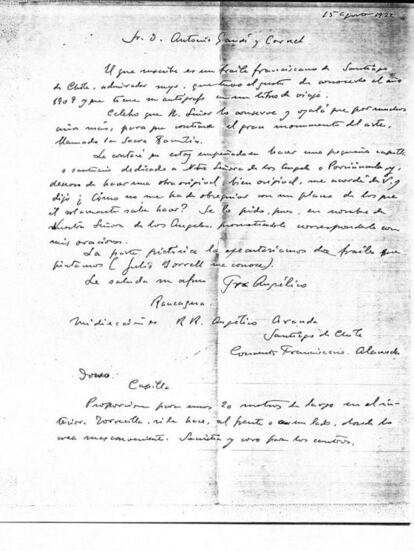 15 Agosto 1922
Sr. D. Antonio Gaudí y Cornet
El que suscribe es un fraile franciscano de Santiago
de Chile, admirador suyo, que tuvo el gusto de conocerlo el año
1909 y que tiene su autógrafo en un libro de viaje.
Celebro que N. Señor lo conserve y ojalá que por muchos
años mas, para que continúe el gran monumento del arte,
llamado la Sacra Familia.
Le contaré que estoy empeñado en hacer una pequeña capilla
o santuario dedicado a Ntra Señora de los Angeles o Porciúncula y,
deseoso de hacer una obra original, bien original, me acordé de V. y
dije ¿Cómo no me ha de obsequiar con un plano de los que
el solamente sabe hacer? Se lo pido, pues, en nombre de
Nuestra Señora de los Angeles, prometiéndole corresponderle con
mis oraciones.
La parte pictórica la ejecutaríamos dos frailes que
pintamos (Julio Borrell me conoce).
Le saluda su afmo Fray Angélico
Rancagua
mi dirección es R. P. Angélico Aranda
Santiago de Chile
Convento Franciscano. Alameda
Capilla
Proporcion para unos 20 metros de largo en el in-
terior. Torrecilla, si le hace, al frente o en un lado, donde lo
crea mas conveniente. Sacristía y coro para los cantores.